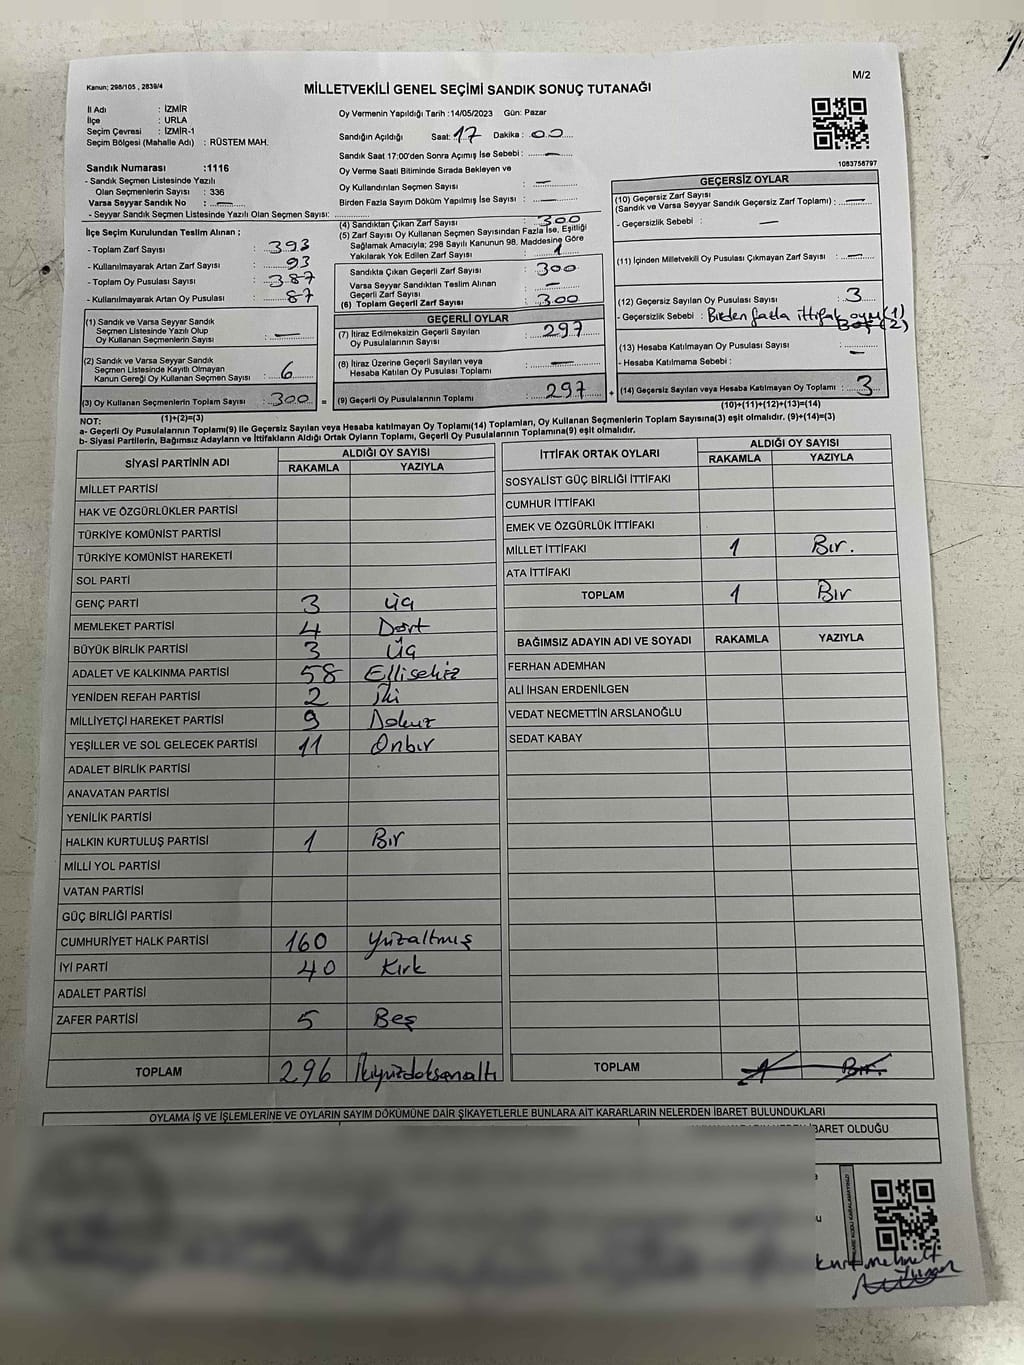 M/2
Kanun; 298/105 , 2839/4
MİLLETVEKİLİ GENEL SEÇİMİ SANDIK SONUÇ TUTANAĞI
İl Adı : İZMİR
İlçe : URLA
Seçim Çevresi : İZMİR-1
Seçim Bölgesi (Mahalle Adı) : RÜSTEM MAH.
Oy Vermenin Yapıldığı Tarih :14/05/2023 Gün: Pazar
Sandığın Açıldığı Saat: 17 Dakika : 00
Sandık Saat 17:00'den Sonra Açımış İse Sebebi : —
Oy Verme Saati Bitiminde Sırada Bekleyen ve
Oy Kullandırılan Seçmen Sayısı : —
Birden Fazla Sayım Döküm Yapılmış İse Sayısı : —
1083758797
Sandık Numarası :1116
- Sandık Seçmen Listesinde Yazılı
Olan Seçmenlerin Sayısı : 336
Varsa Seyyar Sandık No : —
- Seyyar Sandık Seçmen Listesinde Yazılı Olan Seçmen Sayısı:
İlçe Seçim Kurulundan Teslim Alınan ;
- Toplam Zarf Sayısı : 393
- Kullanılmayarak Artan Zarf Sayısı : 93
- Toplam Oy Pusulası Sayısı : 387
- Kullanılmayarak Artan Oy Pusulası : 87
(1) Sandık ve Varsa Seyyar Sandık
Seçmen Listesinde Yazılı Olup
Oy Kullanan Seçmenlerin Sayısı : —
(2) Sandık ve Varsa Seyyar Sandık
Seçmen Listesinde Kayıtlı Olmayan
Kanun Gereği Oy Kullanan Seçmen Sayısı : 6
(3) Oy Kullanan Seçmenlerin Toplam Sayısı : 300 =
(1)+(2)=(3)
(4) Sandıktan Çıkan Zarf Sayısı : 300
(5) Zarf Sayısı Oy Kullanan Seçmen Sayısından Fazla İse, Eşitliği
Sağlamak Amacıyla; 298 Sayılı Kanunun 98. Maddesine Göre
Yakılarak Yok Edilen Zarf Sayısı : 1
Sandıkta Çıkan Geçerli Zarf Sayısı : 300
Varsa Seyyar Sandıktan Teslim Alınan
Geçerli Zarf Sayısı : —
(6) Toplam Geçerli Zarf Sayısı : 300
GEÇERLİ OYLAR
(7) İtiraz Edilmeksizin Geçerli Sayılan
Oy Pusulalarının Sayısı : 297
(8) İtiraz Üzerine Geçerli Sayılan veya
Hesaba Katılan Oy Pusulası Toplamı : —
(9) Geçerli Oy Pusulalarının Toplamı : 297 +
GEÇERSİZ OYLAR
(10) Geçersiz Zarf Sayısı
(Sandık ve Varsa Seyyar Sandık Geçersiz Zarf Toplamı) : —
- Geçersizlik Sebebi : —
(11) İçinden Milletvekili Oy Pusulası Çıkmayan Zarf Sayısı : —
(12) Geçersiz Sayılan Oy Pusulası Sayısı : 3
- Geçersizlik Sebebi : Birden fazla ittifak oyu (1)
Boş (2)
(13) Hesaba Katılmayan Oy Pusulası Sayısı : —
- Hesaba Katılmama Sebebi :
(14) Geçersiz Sayılan veya Hesaba Katılmayan Oy Toplamı : 3
(10)+(11)+(12)+(13)=(14)
NOT:
a- Geçerli Oy Pusulalarının Toplamı(9) ile Geçersiz Sayılan veya Hesaba Katılmayan Oy Toplamı(14) Toplamları, Oy Kullanan Seçmenlerin Toplam Sayısına(3) eşit olmalıdır. (9)+(14)=(3)
b- Siyasi Partilerin, Bağımsız Adayların ve İttifakların Aldığı Ortak Oyların Toplamı, Geçerli Oy Pusulalarının Toplamına(9) eşit olmalıdır.
SİYASİ PARTİNİN ADI ALDIĞI OY SAYISI
RAKAMLA YAZIYLA
MİLLET PARTİSİ
HAK VE ÖZGÜRLÜKLER PARTİSİ
TÜRKİYE KOMÜNİST PARTİSİ
TÜRKİYE KOMÜNİST HAREKETİ
SOL PARTİ
GENÇ PARTİ 3 üç
MEMLEKET PARTİSİ 4 Dört
BÜYÜK BİRLİK PARTİSİ 3 Üç
ADALET VE KALKINMA PARTİSİ 58 Ellisekiz
YENİDEN REFAH PARTİSİ 2 İki
MİLLİYETÇİ HAREKET PARTİSİ 9 Dokuz
YEŞİLLER VE SOL GELECEK PARTİSİ 11 Onbir
ADALET BİRLİK PARTİSİ
ANAVATAN PARTİSİ
YENİLİK PARTİSİ
HALKIN KURTULUŞ PARTİSİ 1 Bir
MİLLİ YOL PARTİSİ
VATAN PARTİSİ
GÜÇ BİRLİĞİ PARTİSİ
CUMHURİYET HALK PARTİSİ 160 Yüzaltmış
İYİ PARTİ 40 Kırk
ADALET PARTİSİ
ZAFER PARTİSİ 5 Beş
TOPLAM 296 İkiyüzdoksanaltı
İTTİFAK ORTAK OYLARI ALDIĞI OY SAYISI
RAKAMLA YAZIYLA
SOSYALİST GÜÇ BİRLİĞİ İTTİFAKI
CUMHUR İTTİFAKI
EMEK VE ÖZGÜRLÜK İTTİFAKI
MİLLET İTTİFAKI 1 Bir.
ATA İTTİFAKI
TOPLAM 1 Bir
BAĞIMSIZ ADAYIN ADI VE SOYADI RAKAMLA YAZIYLA
FERHAN ADEMHAN
ALİ İHSAN ERDENİLGEN
VEDAT NECMETTİN ARSLANOĞLU
SEDAT KABAY
TOPLAM 1 Bir.
OYLAMA İŞ VE İŞLEMLERİNE VE OYLARIN SAYIM DÖKÜMÜNE DAİR ŞİKAYETLERLE BUNLARA AİT KARARLARIN NELERDEN İBARET BULUNDUKLARI
İBARET OLDUĞU